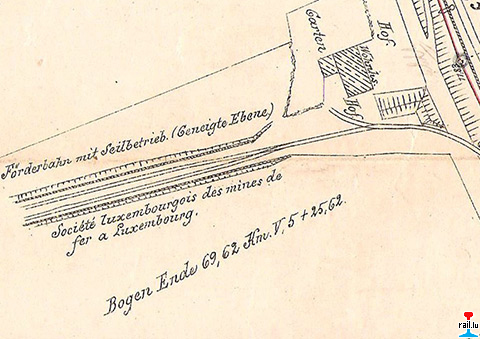 Garten
Hof
Wohnhs.
Hof
Förderbahn mit Seilbetrieb. (Geneigte Ebene)
Société luxembourgois des mines de
fer a Luxembourg.
Bogen Ende 69,62 Km. V, 5 + 25,62.
rail.lu